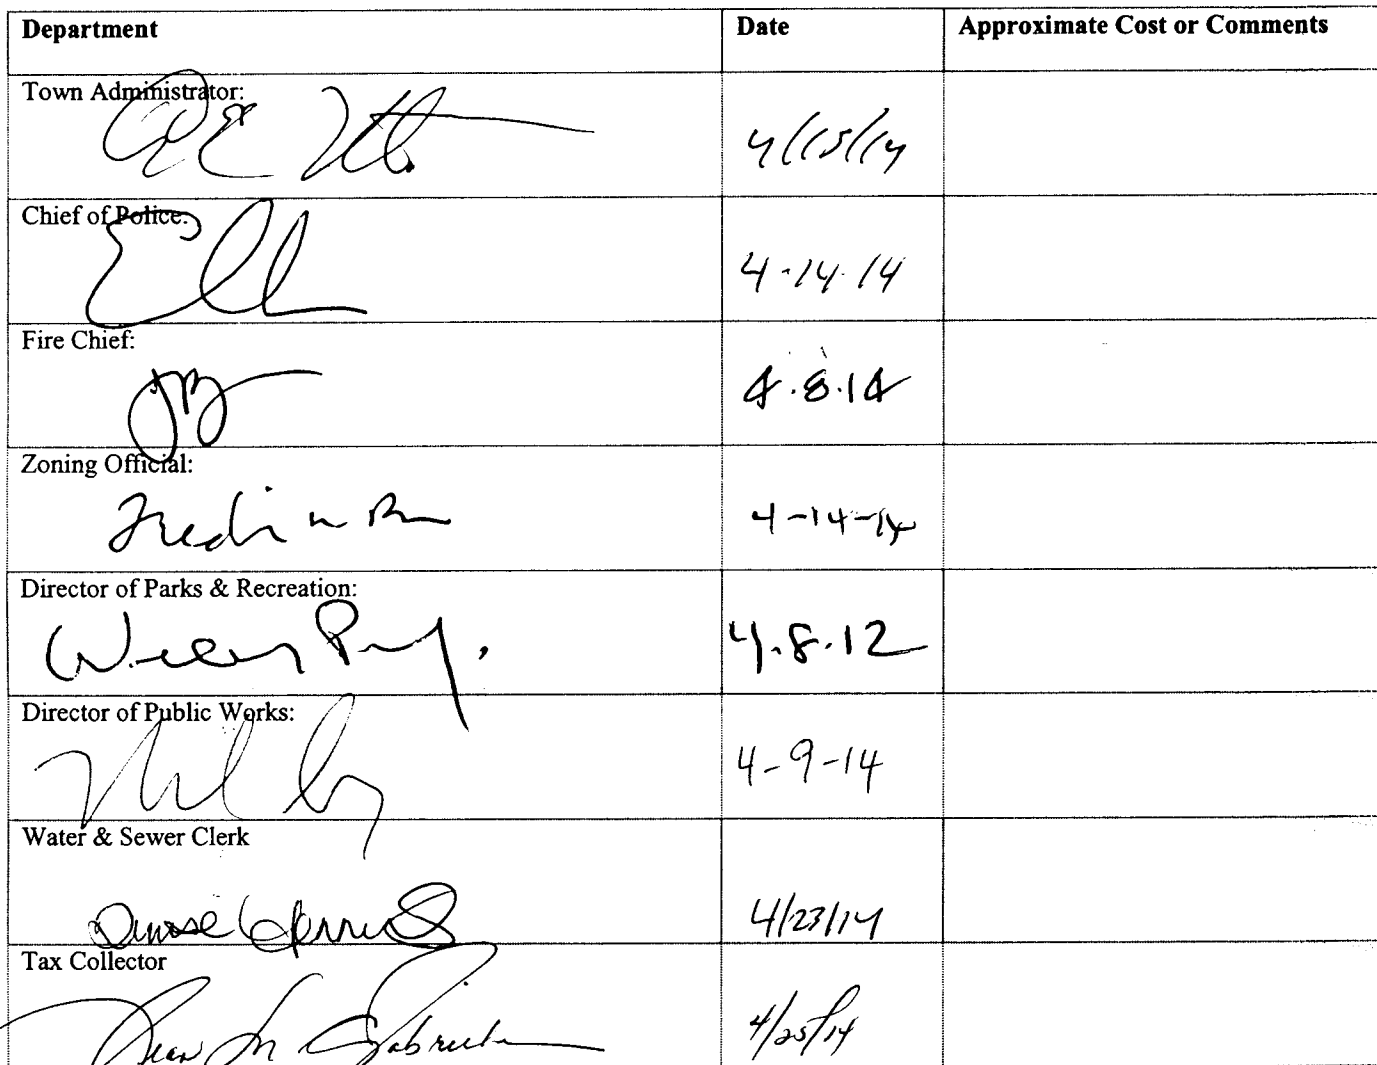 Department Date Approximate Cost or Comments
Town Administrator:
4/15/14
Chief of Police:
4-14-14
Fire Chief:
4.8.14
Zoning Official:
4-14-14
Director of Parks & Recreation:
4.8.12
Director of Public Works:
4-9-14
Water & Sewer Clerk
4/23/14
Tax Collector
4/25/14